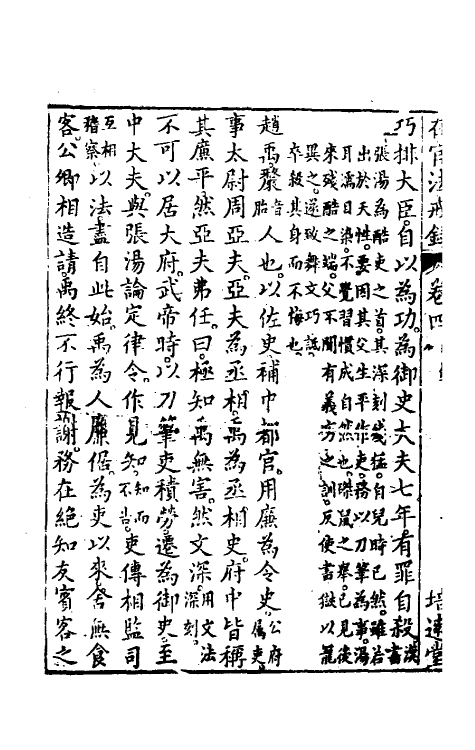 在官法戒錄 卷四 培遠堂
巧排大臣自以為功為御史大夫七年有罪自殺漢書
張湯為酷吏之首其深刻殘猛自兒時已然雖若
出於天性要因其父生平作吏務以刀筆為事湯
耳濡目染不覺習慣成自然也磔鼠之舉已見後
來殘酷之端父不聞有義方之訓反使書獄以寵
異之遂致舞文巧詆
卒殺其身而不悔也
趙禹斄音胎人也以佐史補中都官用廉為令史公府屬吏
事太尉周亞夫亞夫為丞相禹為丞相史府中皆稱
其廉平然亞夫弗任曰極知禹無害然文深用文法深刻
不可以居大府武帝時以刀筆吏積勞遷為御史至
中大夫與張湯論定律令作見知知而不告吏傳相監司
互相稽察以法盡自此始禹為人廉倨為吏以來舍無食
客公卿相造請禹終不行報謝務在絕知友賓客之